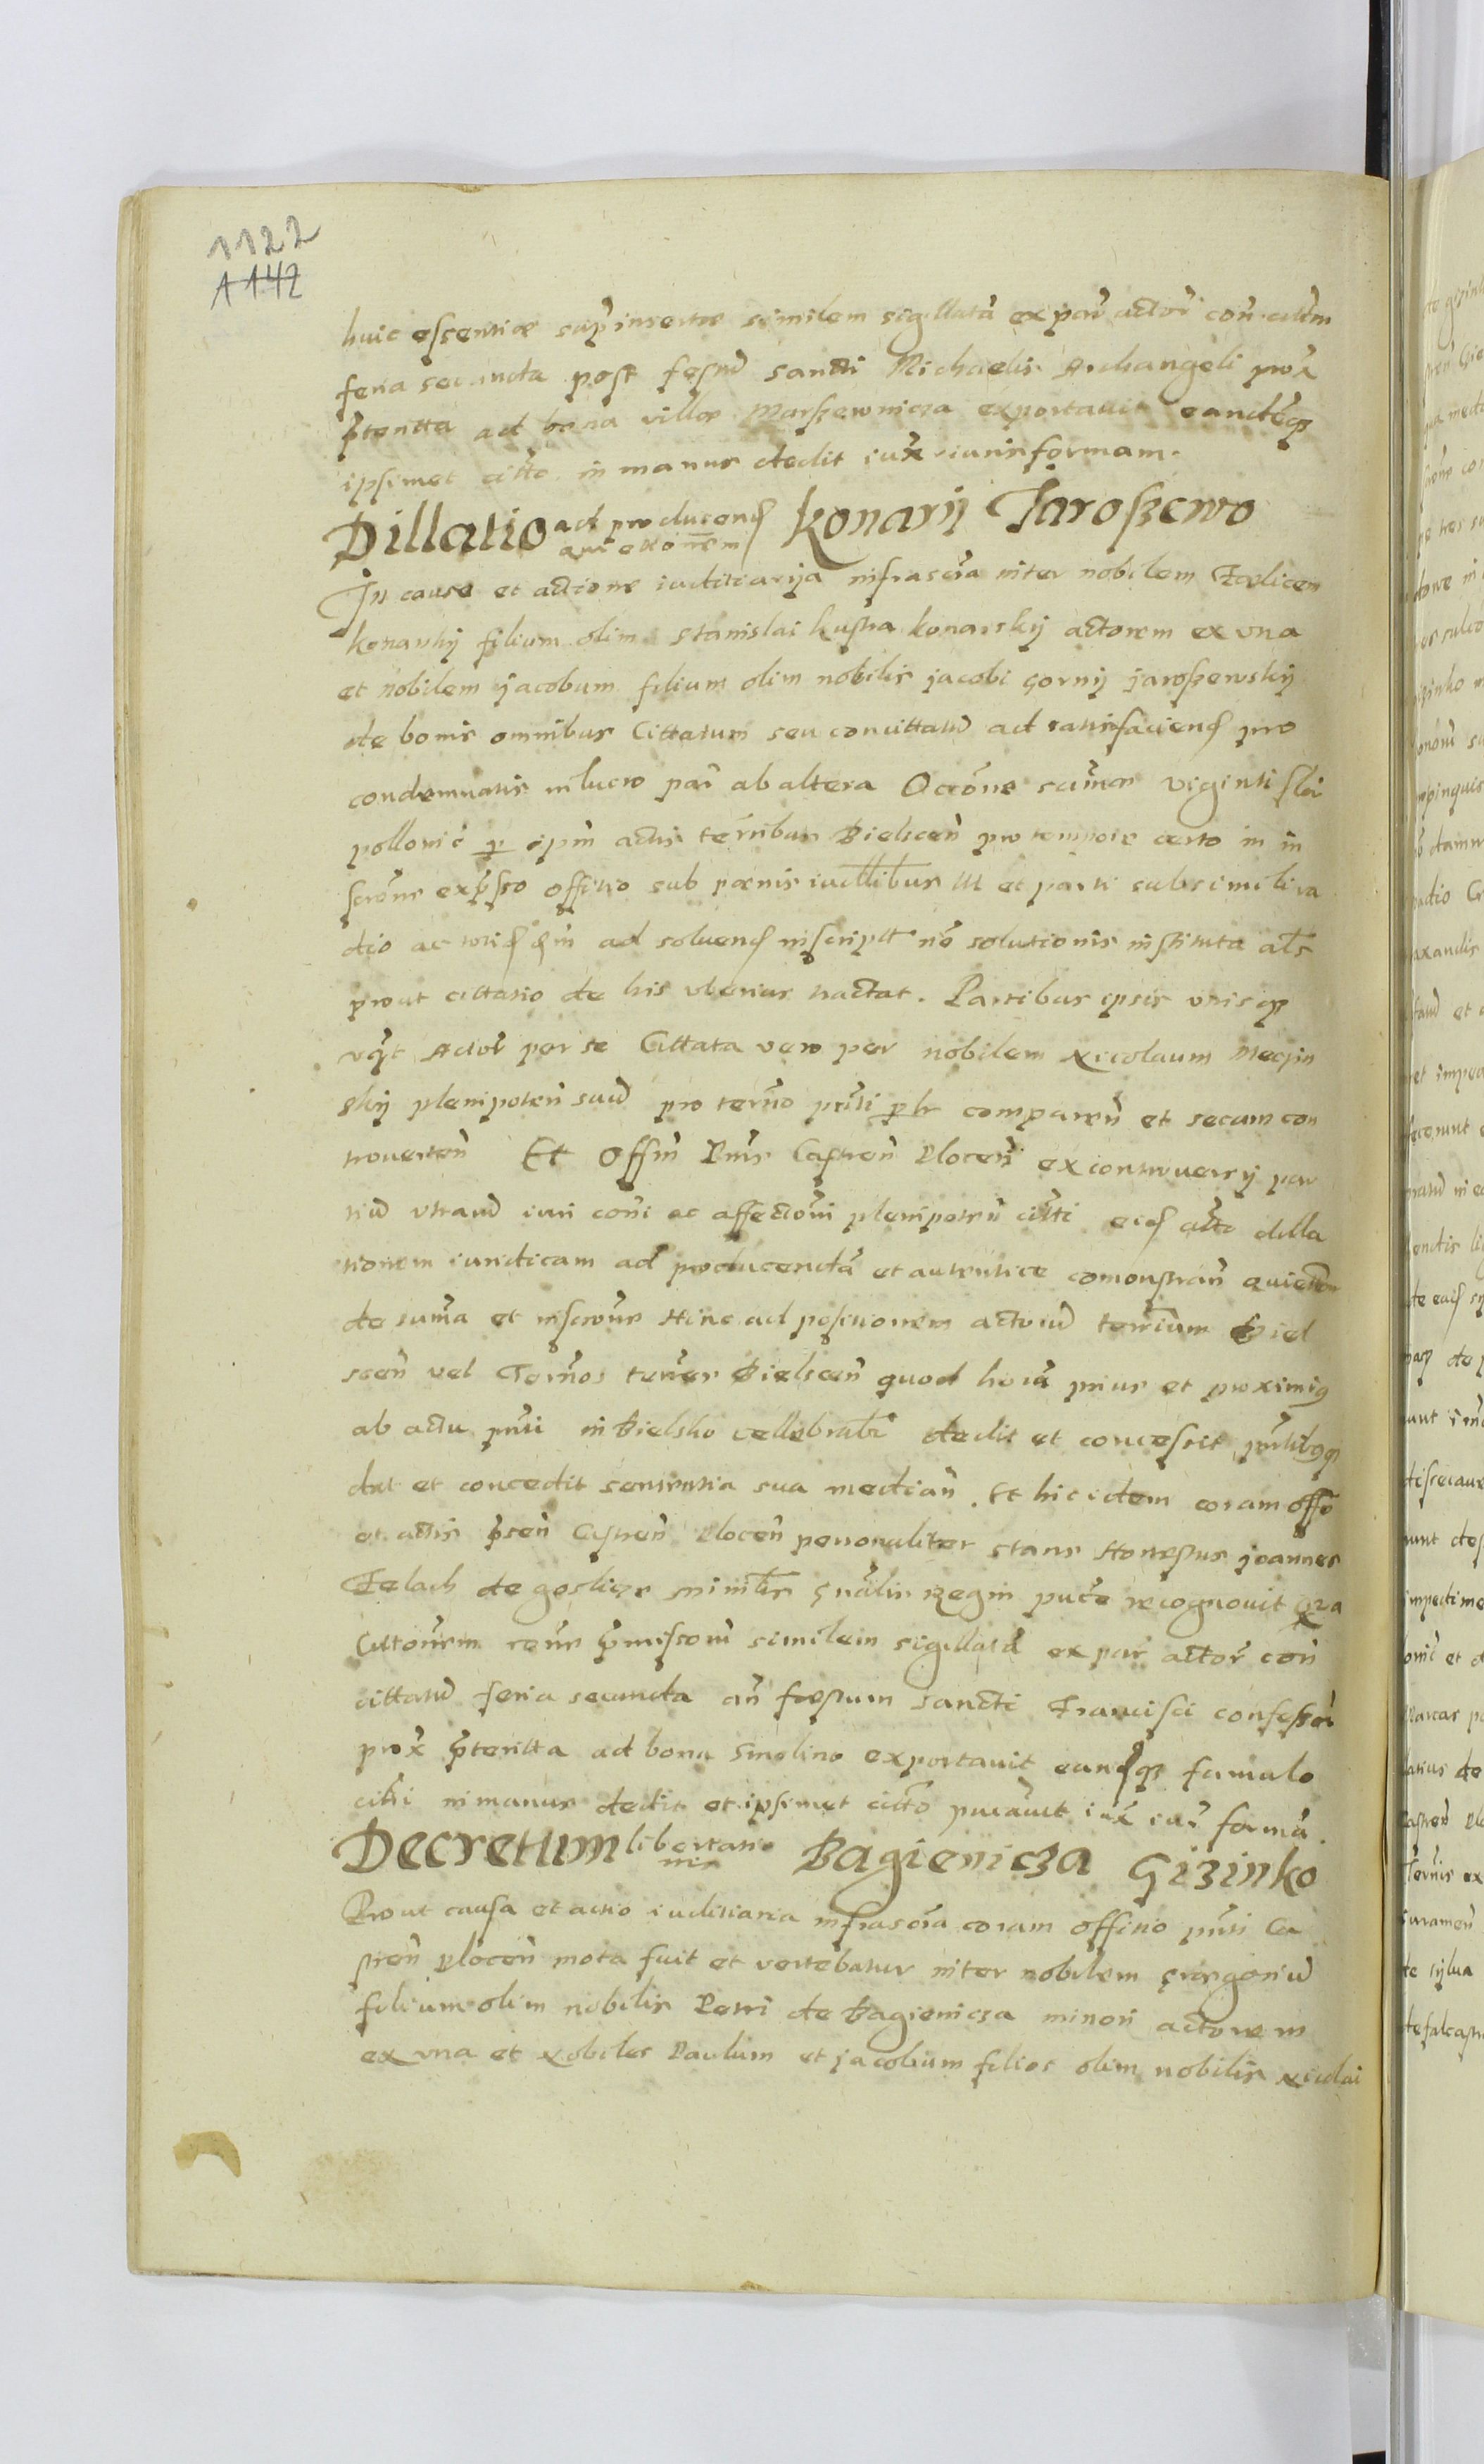 1122
1142
huic essentiæ sup insertæ similem sigillatā ex par actor con citām
feria secunda post festū sancti Michaelis Archangeli prox
pteritta ad bona villæ Marszewnicza exportauit eandēqз
ipsimet citto in manus dedit iux iuris formam.
Dillatio ad producend quiettonem Konarij Jaroszewo
In causa et actione iuditiarija infrascra inter nobilem Fœlicem
konarskij filium olim Stanislai kustra konarskij actorem ex vna
et nobilem jacobum filium olim nobilis jacobi gornij jaroszewskij
de bonis omnibus Cittatum seu concittatū ad satisfaciend pro
condemnatis in lucro par ab altera Occone sumæ viginti flor
pollonic p ipm actis terribus Bielscen pro tempore certo in in
scrone expsso offitio sub pœnis iudlibus III et parti sub simili va
dio ad soluend inscriptt nō solutionis instituta als
prout cittatio de his vberius tractat. Partibus ipsis vtrisqз
vqt Actor per se Cittata vero per nobilem Nicolaum Mecjin
skij plenipoten suū pro termo pnti plr comparen et secum con
trouerten Et Offm Pns Castren Plocen ex controuersij par
tiū vtrarū iuri coni ac affectoni plenipoten citti eid citto dilla
tionem iuridicam ad producendā et autentice comonstran quiettōem
de suma et inscrone Hinc ad positionem actorū terrium Biel
scen vel Termos terrer Bielscen quod horū prius et proximiq
ab actu pnti in Bielsko cellebrabr dedit et concessit pntibqз
dat et concedit sententia sua median. Et hic idem coram offo
et actis psen Castren Plocen personaliter stans Honestus joannes
Felach de goslicze minitlis gnalis Regni puce recognouit qra
Cittonem rone pmissorū similem sigillatā ex par actor con
cittatū feria secunda an festum sancti Francisci confessor
prox pteritta ad bona Smolino exportauit eandqз famulo
citti in manus dedit et ipsimet citto pucauit iux iur formā.
Decretum libertatio nis Bagienicza Gizinko
Prout causa et actio iuditiaria infrascra coram offitio pnti Ca
stren Plocen mota fuit et vertebatur inter nobilem gregoriū
filium olim nobilis Petri de Bagienicza minori actorem
ex vna et Nobiles Paulum et jacobum filios olim nobilis Nicolai